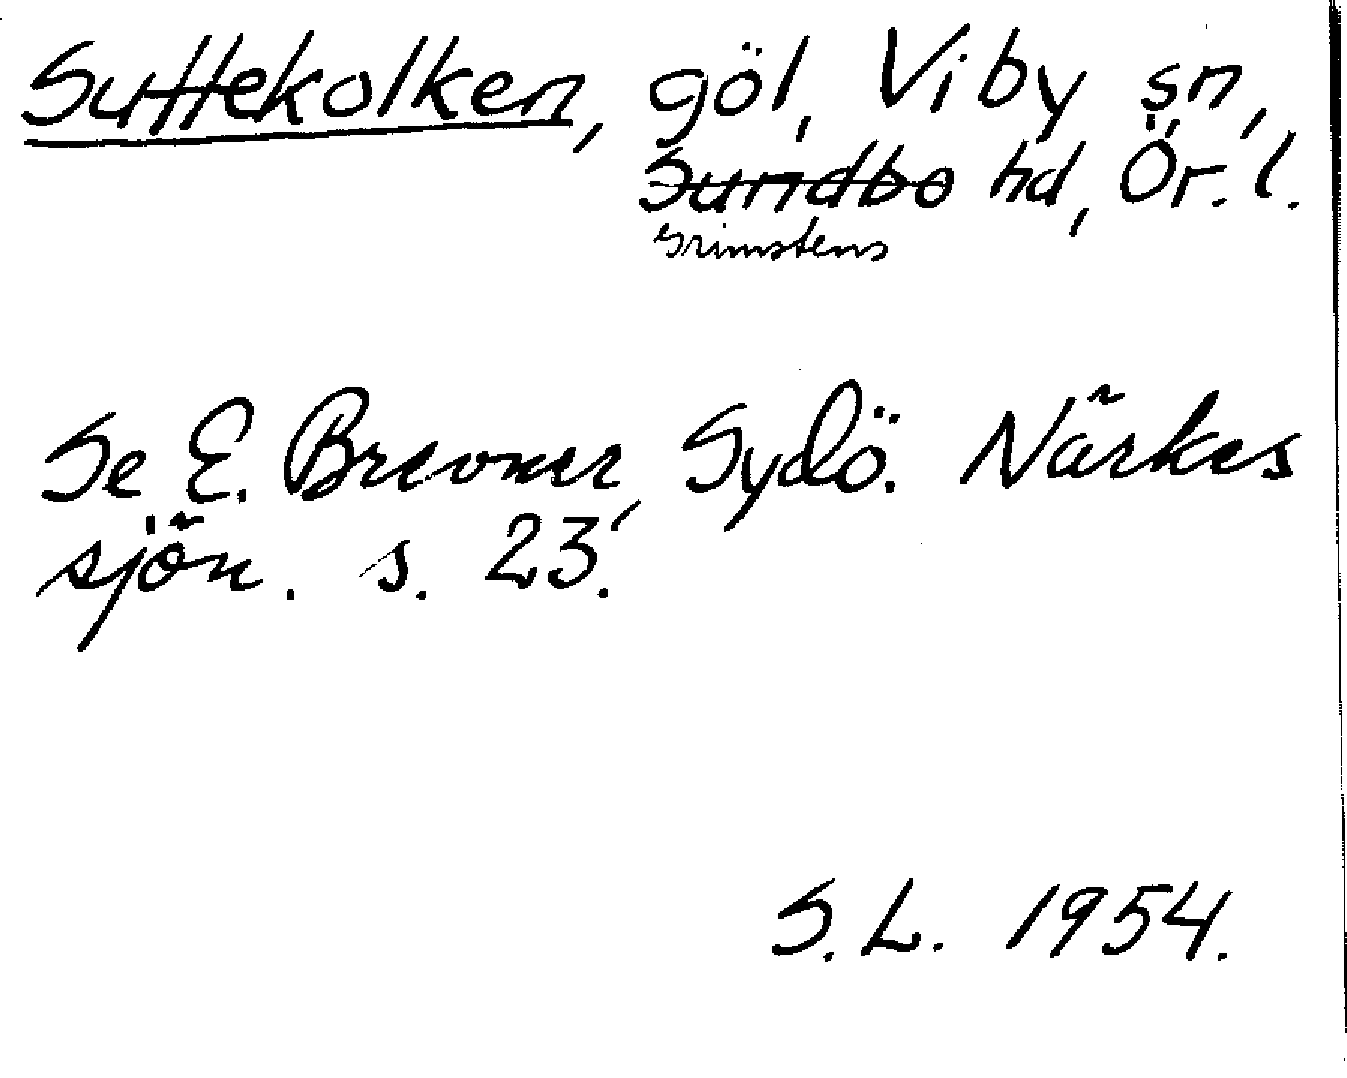 Suttekolken, göl, Viby sn,
Sundbo hd, Ör. l.
Grimstens
Se E. Brevner, Sydö. Närkes
sjön. s. 23.
S. L. 1954.